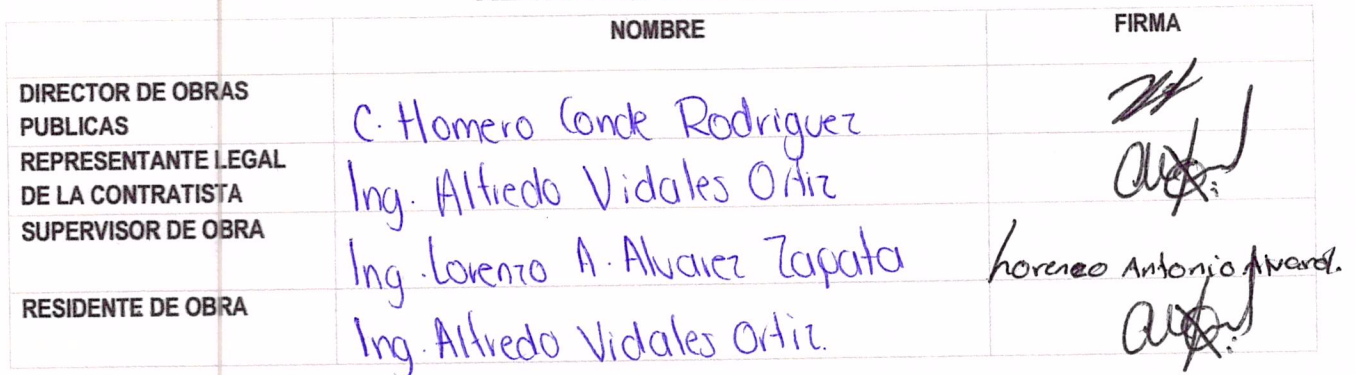 NOMBRE FIRMA
DIRECTOR DE OBRAS
PUBLICAS C. Homero Conde Rodriguez
REPRESENTANTE LEGAL
DE LA CONTRATISTA Ing. Alfredo Vidales Ortiz
SUPERVISOR DE OBRA
Ing. Lorenzo A. Alvarez Zapata Lorenzo Antonio Alvarez.
RESIDENTE DE OBRA
Ing. Alfredo Vidales Ortiz.